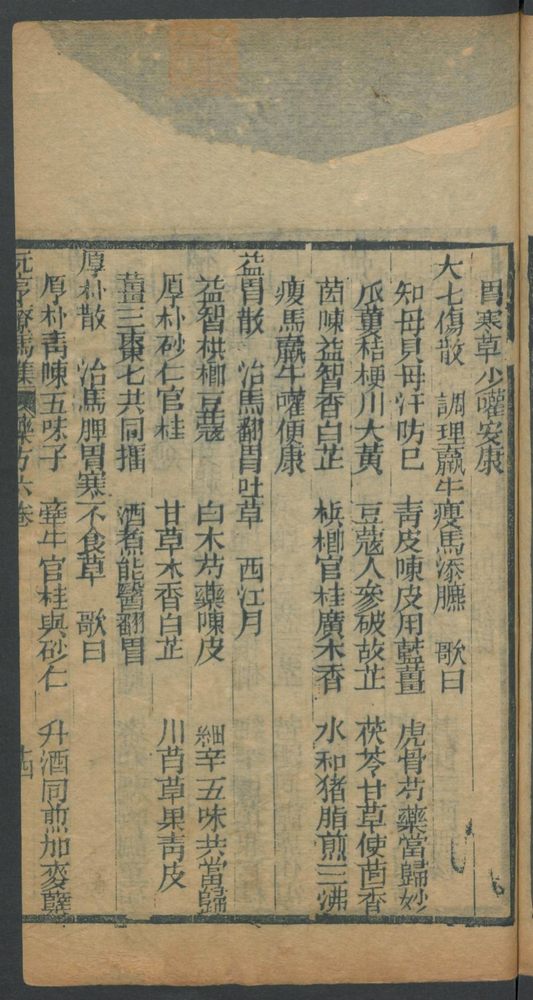 胃寒草少嚾安康
大七傷散　調理羸牛瘦馬添臕　歌曰
知母貝母汗防巳　靑皮陳皮用藍薑　虎骨芍藥當歸妙
瓜蔞桔梗川大黃　豆蔻人參破故芷　茯苓甘草使茴香
茵陳益智香白芷　梹榔官桂廣木香　水和猪脂煎三沸
瘦馬羸牛嚾便康
益胃散　治馬翻胃吐草　西江月
益智梹榔豆蔻　白木芍藥陳皮　細辛五味共當歸
厚朴砂仁官桂　甘草木香白芷　川芎草果靑皮
薑三棗七共同擂　酒煮能醫翻胃
厚朴散　治馬脾胃寒不食草　歌曰
厚朴靑陳五味子　牽牛官桂與砂仁　升酒同煎加麥糵
元亨療馬集　藥方六卷　十四